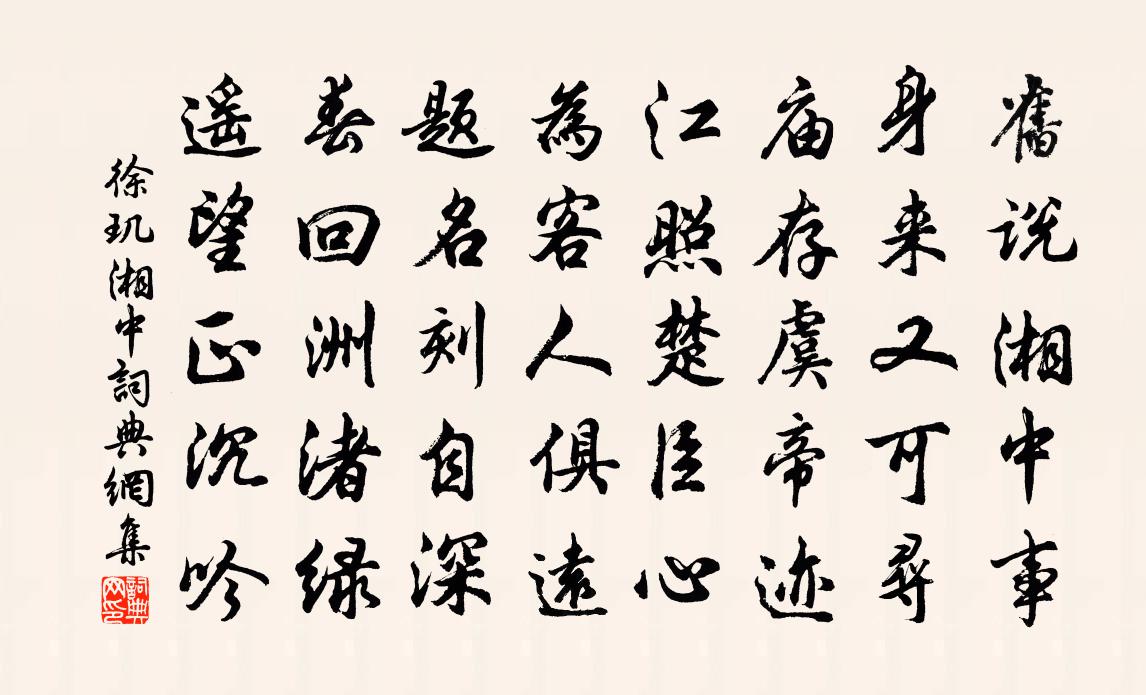 舊说湘中事
身来又可尋
庙存虞帝迹
江照楚臣心
為客人俱遠
题名刻自深
春回洲渚绿
遥望正沉吟
徐玑湘中詞典網集
詞典網印